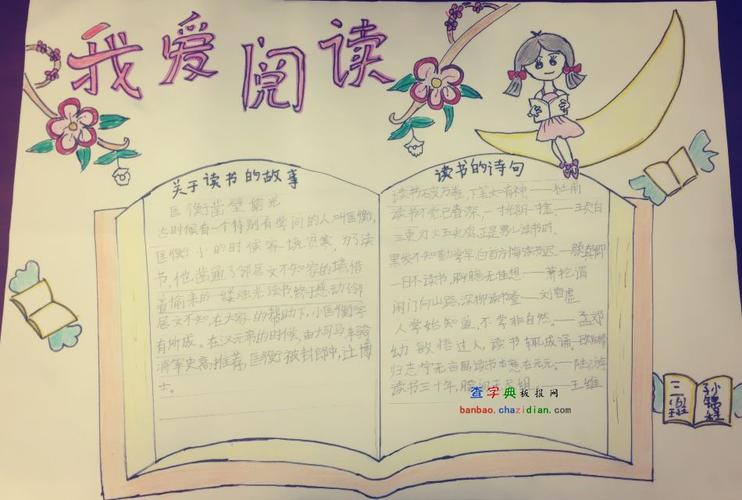 我爱阅读
关于读书的故事
匡衡凿壁偷光
时候有一个特别有学问的人叫匡衡,
匡衡小的时候家境贫寒,为了读
书,他凿通了邻居文不知家的墙,借
着偷来的一缕烛光读书,终于感动邻
居文不知,在大家的帮助下,小匡衡学
有所成。在汉元帝的时候,由大司马、车骑
将军史高推荐,匡衡被封郎中,迁博
士。
读书的诗句
读书破万卷,下笔如有神——杜甫
读书不觉已春深,一寸光阴一寸金——王贞白
三更灯火五更鸡,正是男儿读书时。
黑发不知勤学早,白首方悔读书迟——颜真卿
一日不读书,胸臆无佳想——萧抡谓
闲门向山路,深柳读书堂——刘昚虚
人学始知道,不学非自然。——孟郊
幼敏悟过人,读书辄成诵——
归志宁无五亩园,读书本意在元元。——陆游
读书三十年,腰——王维
查字典 板报网
banbao.chazidian.com
三
班
孙